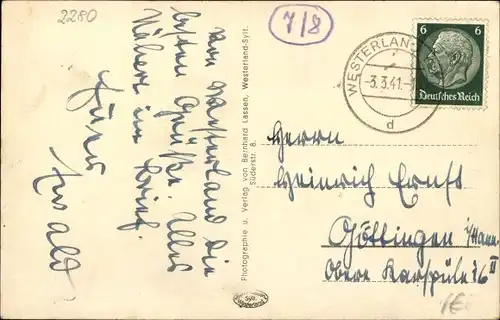 2280
7/8
von Westerland die
besten Grüße. Alles
Nähere im Brief.
Euer
Ewald
Photographie u. Verlag von Bernhard Lassen, Westerland-Sylt.
Süderstr. 8.
Sylt
Westerland
WESTERLAN
-3.3.41.-
d
6 6
Deutsches Reich
Herrn
Heinrich Ernst
Göttingen i/Hann.
Obere Karspüle 16 II